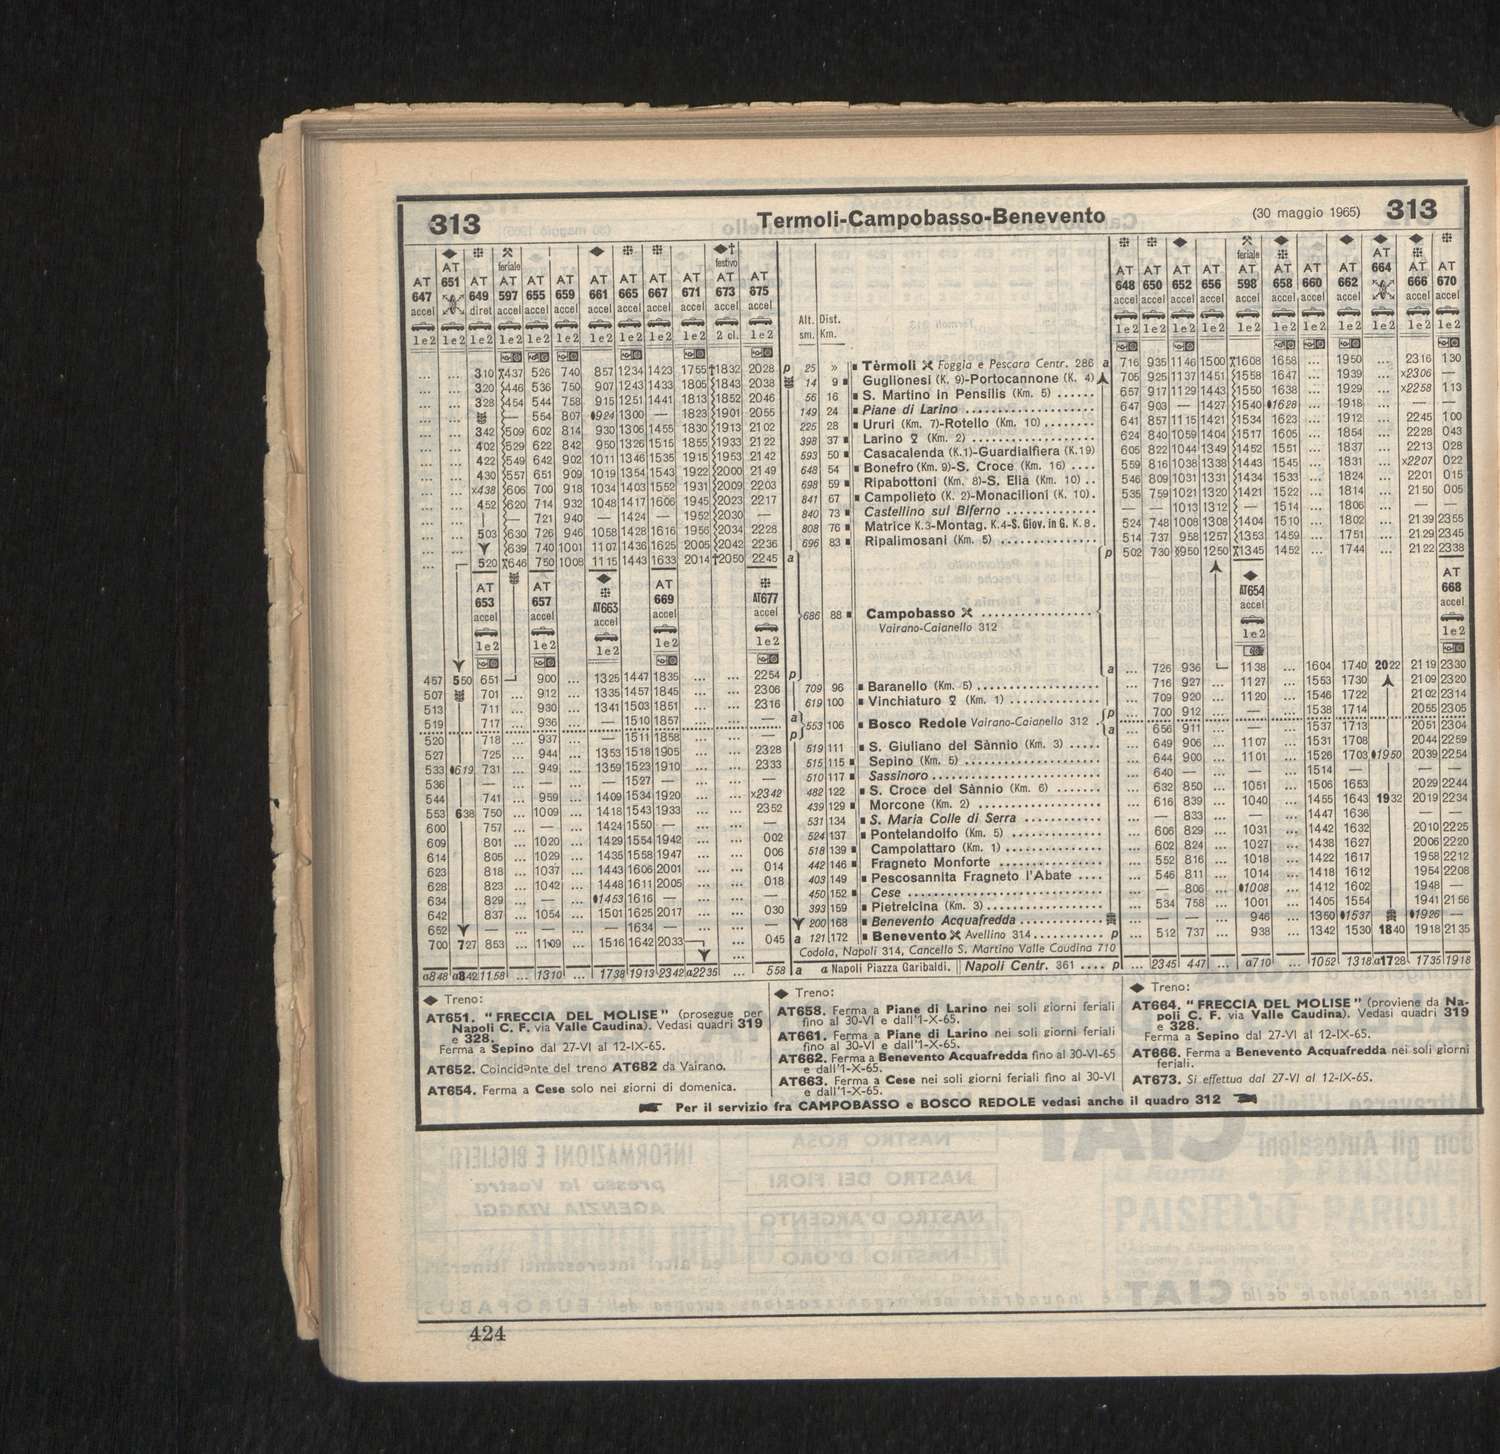 313 Termoli-Campobasso-Benevento (30 maggio 1965) 313
AT 647 accel 1 e 2
AT 651
AT 649 diret 1 e 2
feriale AT 597 accel 1 e 2
AT 655 accel 1 e 2
AT 659 accel 1 e 2
AT 661 accel 1 e 2
AT 665 accel 1 e 2
AT 667 accel 1 e 2
AT 671 accel 1 e 2
festivo AT 673 accel 2 cl.
AT 675 accel 1 e 2
Alt. sm. Dist. Km.
AT 648 accel 1 e 2
AT 650 accel 1 e 2
AT 652 accel 1 e 2
AT 656 accel 1 e 2
feriale AT 598 accel 1 e 2
AT 658 accel 1 e 2
AT 660 accel 1 e 2
AT 662 accel 1 e 2
AT 664
AT 666 accel 1 e 2
AT 670 accel 1 e 2
... ... 310 437 526 740 857 1234 1423 1755 1832 2028 p 25 » Tèrmoli Foggia e Pescara Centr. 286 a 716 935 1146 1500 1608 1658 ... 1950 ... 2316 130
... ... 320 446 536 750 907 1243 1433 1805 1843 2038 14 9 Guglionesi (K. 9)-Portocannone (K. 4) 705 925 1137 1451 1558 1647 ... 1939 ... x2306 —
... ... 328 454 544 758 915 1251 1441 1813 1852 2046 56 16 S. Martino in Pensilis (Km. 5) ...... 657 917 1129 1443 1550 1638 ... 1929 ... x2258 113
... ... — 554 807 924 1300 — 1823 1901 2055 149 24 Piane di Larino 647 903 — 1427 1540 1628 ... 1918 ... — —
... ... 342 509 602 814 930 1306 1455 1830 1913 2102 225 28 Ururi (Km. 7)-Rotello (Km. 10) 641 857 1115 1421 1534 1623 ... 1912 ... 2245 100
... ... 402 529 622 842 950 1326 1515 1855 1933 2122 398 37 Larino (Km. 2) 624 840 1059 1404 1517 1605 ... 1854 ... 2228 043
... ... 422 549 642 902 1011 1346 1535 1915 1953 2142 593 50 Casacalenda (K.1)-Guardialfiera (K.19) 605 822 1044 1349 1452 1551 ... 1837 ... 2213 028
... ... 430 557 651 909 1019 1354 1543 1922 2000 2149 648 54 Bonefro (Km. 9)-S. Croce (Km. 16) .... 559 816 1038 1338 1443 1545 ... 1831 ... x2207 022
... ... x438 606 700 918 1034 1403 1552 1931 2009 2203 698 59 Ripabottoni (Km. 8)-S. Elia (Km. 10) .. 546 809 1031 1331 1434 1533 ... 1824 ... 2201 015
... ... 620 714 932 1048 1417 1606 1945 2023 2217 841 67 Campolieto (K. 2)-Monacilioni (K. 10). 535 759 1021 1320 1421 1522 ... 1814 ... 2150 005
... ... 721 940 — 1424 — 1952 2030 — 840 73 Castellino sul Biferno — — 1013 1312 — 1514 ... 1806 ... — —
... ... 503 630 726 946 1058 1428 1616 1956 2034 2228 808 76 Matrice K.3-Montag. K.4-S. Giov. in G. K. 8. 524 748 1008 1308 1404 1510 ... 1802 ... 2139 2355
... 639 740 1001 1107 1436 1625 2005 2042 2236 696 83 Ripalimosani (Km. 5) 514 737 958 1257 1353 1459 ... 1751 ... 2129 2345
... 520 646 750 1008 1115 1443 1633 2014 2050 2245 a p 502 730 950 1250 1345 1452 ... 1744 ... 2122 2338
AT 653 accel 1 e 2
AT 657 accel 1 e 2
AT663 accel 1 e 2
AT 669 accel 1 e 2
AT677 accel 1 e 2
686 88 Campobasso
Vairano-Caianello 312
AT654 accel 1 e 2
AT 668 accel 1 e 2
a ... 726 936 1138 ... 1604 1740 2022 2119 2330
457 550 651 900 ... 1325 1447 1835 ... ... 2254 p
507 701 ... 912 ... 1335 1457 1845 ... ... 2306 709 96 Baranello (Km. 5) ... 716 927 ... 1127 ... 1553 1730 2109 2320
513 711 ... 930 ... 1341 1503 1851 ... ... 2316 619 100 Vinchiaturo (Km. 1) ... 709 920 ... 1120 ... 1546 1722 2102 2314
519 717 ... 936 ... — 1510 1857 ... ... — a 553 106 Bosco Redole Vairano-Caianello 312 p ... 700 912 ... — ... 1538 1714 2055 2305
520 718 ... 937 ... — 1511 1858 ... ... — p a ... 656 911 ... — ... 1537 1713 2051 2304
527 725 ... 944 ... 1353 1518 1905 ... ... 2328 519 111 S. Giuliano del Sànnio (Km. 3) ..... ... 649 906 ... 1107 ... 1531 1708 2044 2259
533 619 731 ... 949 ... 1359 1523 1910 ... ... 2333 515 115 Sepino (Km. 5) ... 644 900 ... 1101 ... 1526 1703 1950 2039 2254
536 — ... — ... — 1527 — ... ... — 510 117 Sassinoro ... 640 — ... — ... 1514 — — —
544 741 ... 959 ... 1409 1534 1920 ... ... x2342 482 122 S. Croce del Sànnio (Km. 6) ....... ... 632 850 ... 1051 ... 1506 1653 2029 2244
553 638 750 ... 1009 ... 1418 1543 1933 ... ... 2352 439 129 Morcone (Km. 2) ... 616 839 ... 1040 ... 1455 1643 1932 2019 2234
600 757 ... — ... 1424 1550 — ... ... — 531 134 S. Maria Colle di Serra ... — 833 ... — ... 1447 1636 — —
609 801 ... 1020 ... 1429 1554 1942 ... ... 002 524 137 Pontelandolfo (Km. 5) ... 606 829 ... 1031 ... 1442 1632 2010 2225
614 805 ... 1029 ... 1435 1558 1947 ... ... 006 518 139 Campolattaro (Km. 1) ... 602 824 ... 1027 ... 1438 1627 2006 2220
623 818 ... 1037 ... 1443 1606 2001 ... ... 014 442 146 Fragneto Monforte ... 552 816 ... 1018 ... 1422 1617 1958 2212
628 823 ... 1042 ... 1448 1611 2005 ... ... 018 403 149 Pescosannita Fragneto l'Abate .... ... 546 811 ... 1014 ... 1418 1612 1954 2208
634 829 ... — ... 1453 1616 — ... ... — 450 152 Cese ... — 806 ... 1008 ... 1412 1602 1948 —
642 837 ... 1054 ... 1501 1625 2017 ... ... 030 393 159 Pietrelcina (Km. 3) ... 534 758 ... 1001 ... 1405 1554 1941 2156
652 — ... — ... — 1634 — ... — 200 168 Benevento Acquafredda ... — — ... 946 ... 1350 1537 1926 —
700 727 853 ... 1109 ... 1516 1642 2033 ... 045 a 121 172 Benevento Avellino 314 p ... 512 737 ... 938 ... 1342 1530 1840 1918 2135
Codola, Napoli 314, Cancello S. Martino Valle Caudina 710
a848 a842 1158 ... 1310 ... 1738 1913 2342 a2235 ... 558 a a Napoli Piazza Garibaldi. || Napoli Centr. 361 .... p ... 2345 447 ... a710 ... 1052 1318 a1728 1735 1918
◆ Treno:
AT651. "FRECCIA DEL MOLISE" (prosegue per
Napoli C. F. via Valle Caudina). Vedasi quadri 319
e 328.
Ferma a Sepino dal 27-VI al 12-IX-65.
AT652. Coincidente del treno AT682 da Vairano.
AT654. Ferma a Cese solo nei giorni di domenica.
◆ Treno:
AT658. Ferma a Piane di Larino nei soli giorni feriali
fino al 30-VI e dall'1-X-65.
AT661. Ferma a Piane di Larino nei soli giorni feriali
fino al 30-VI e dall'1-X-65.
AT662. Ferma a Benevento Acquafredda fino al 30-VI-65
e dall'1-X-65.
AT663. Ferma a Cese nei soli giorni feriali fino al 30-VI
e dall'1-X-65.
◆ Treno:
AT664. "FRECCIA DEL MOLISE" (proviene da Na-
poli C. F. via Valle Caudina). Vedasi quadri 319
e 328.
Ferma a Sepino dal 27-VI al 12-IX-65.
AT666. Ferma a Benevento Acquafredda nei soli giorni
feriali.
AT673. Si effettua dal 27-VI al 12-IX-65.
Per il servizio fra CAMPOBASSO e BOSCO REDOLE vedasi anche il quadro 312
424